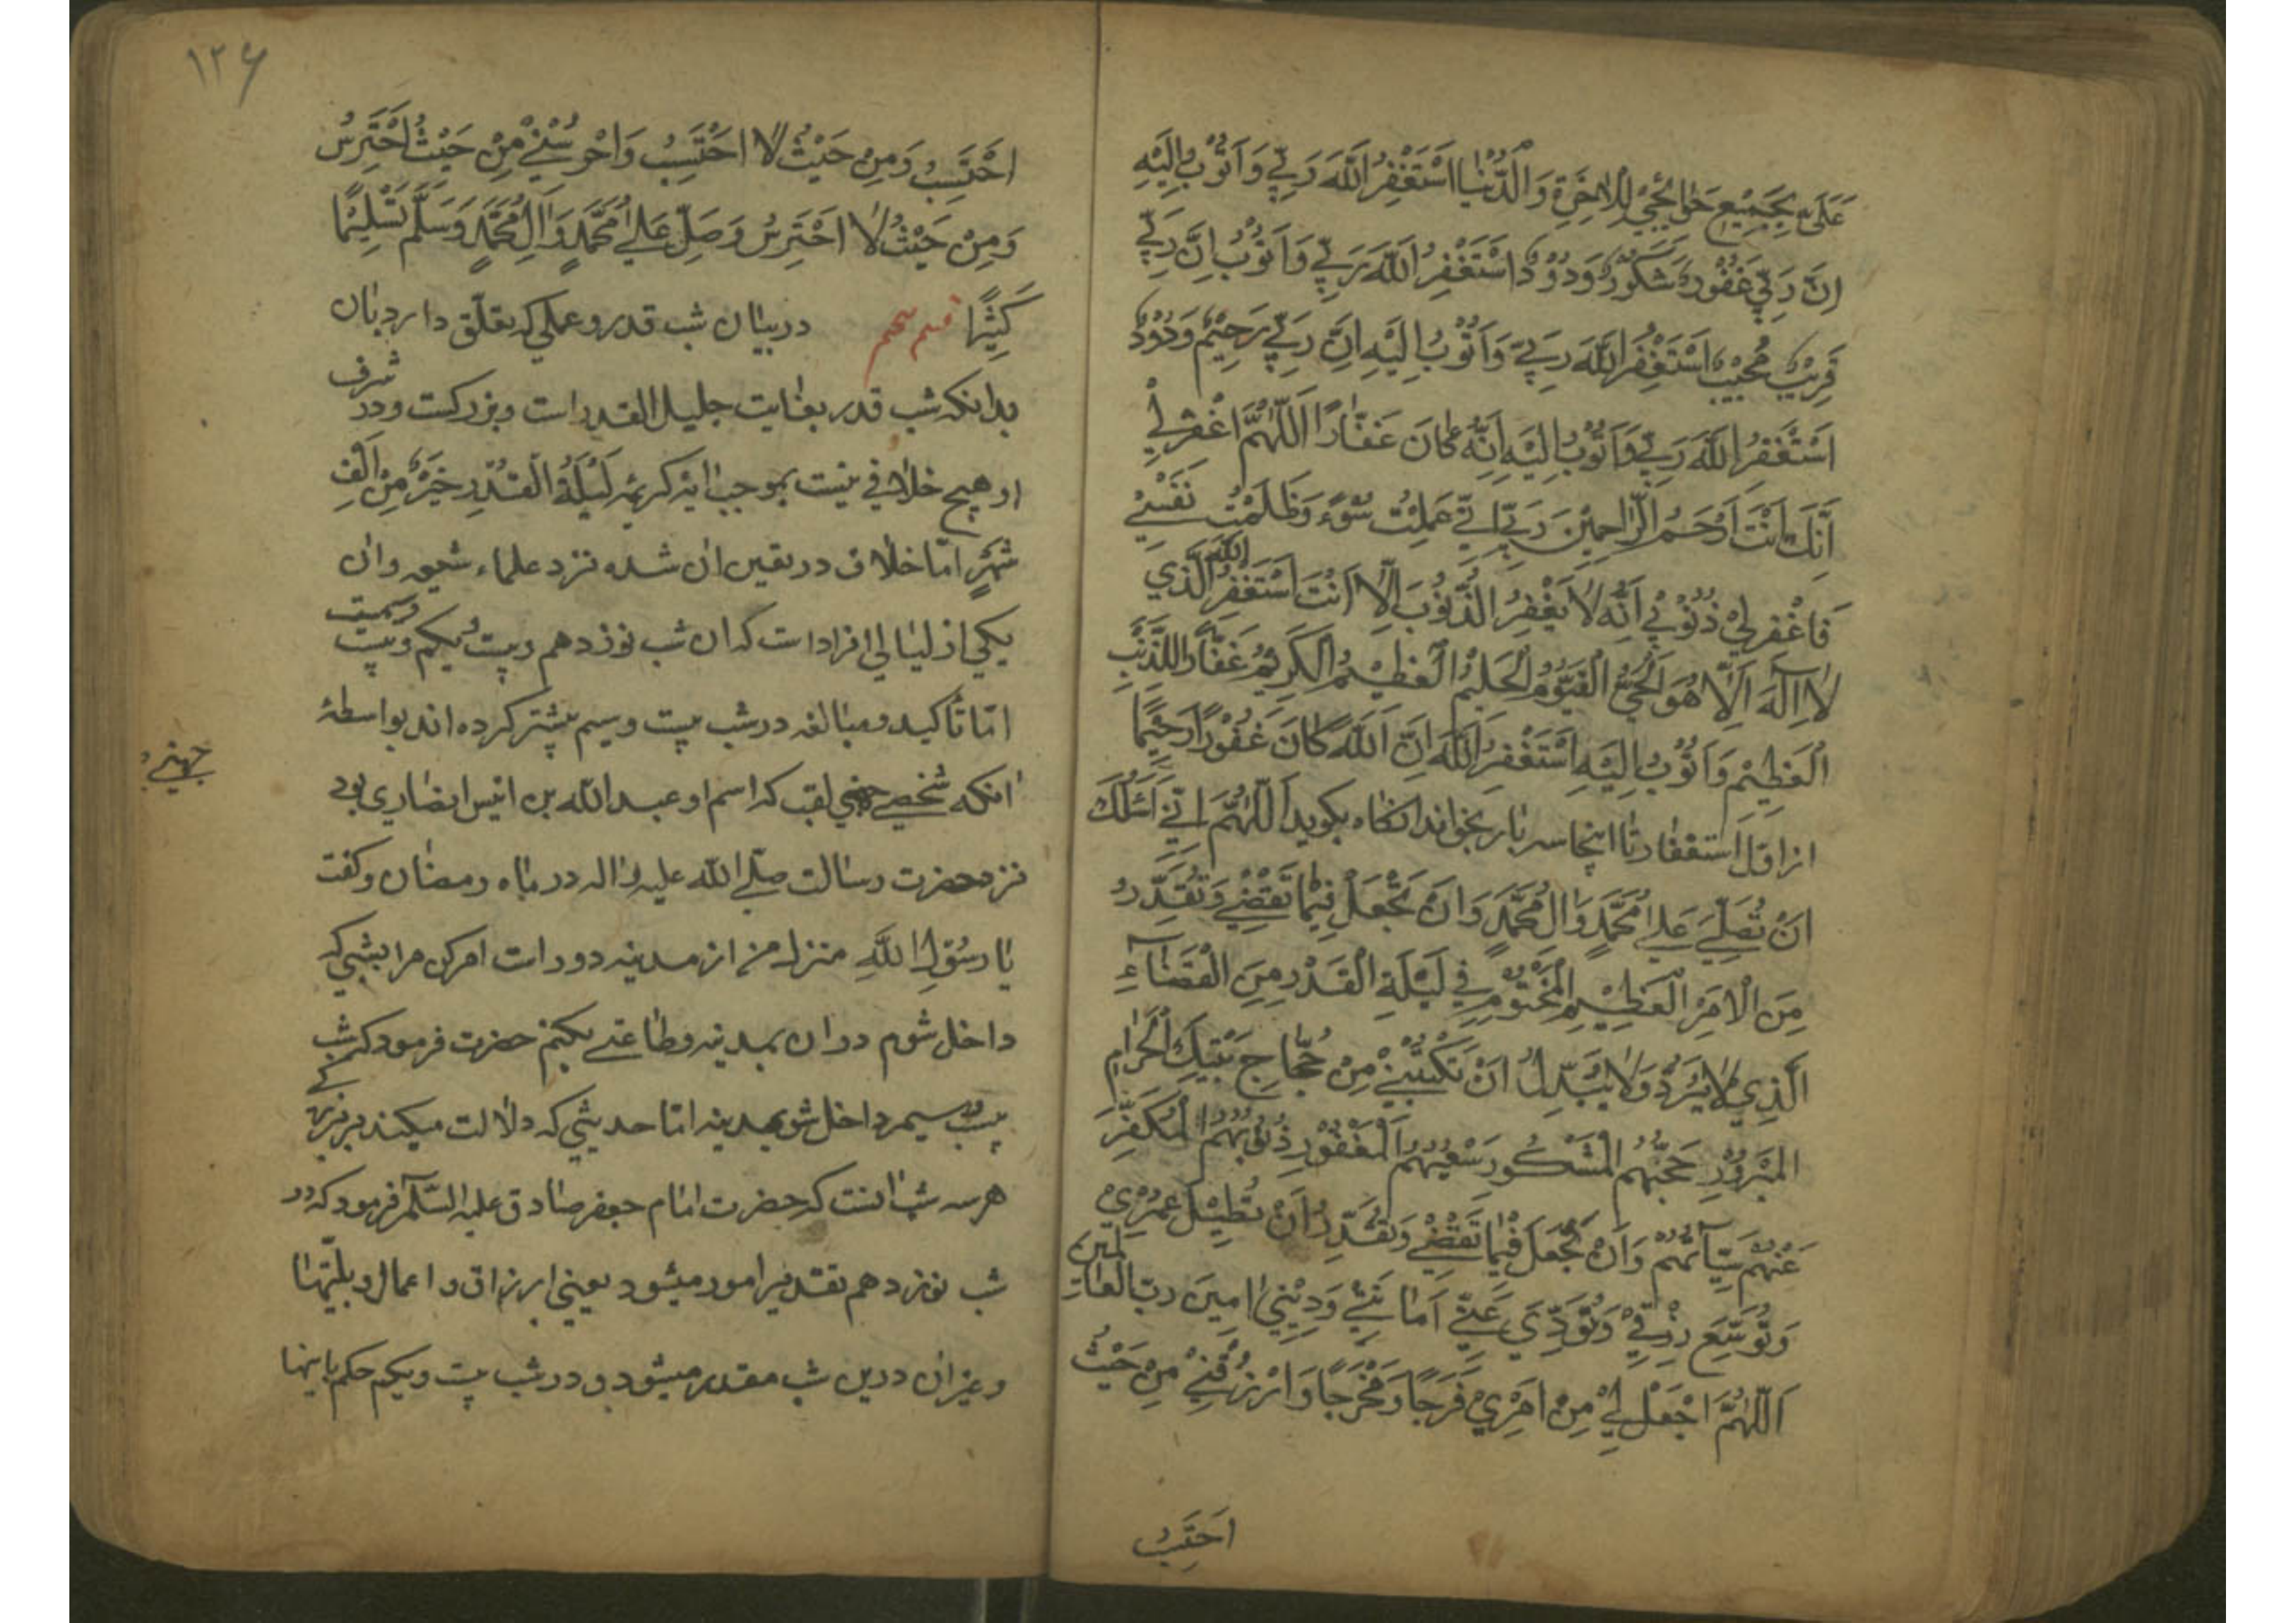 عَلَىَّ بِجَمِيْعِ حَوٰائِجِيْ لِلْاٰخِرَةِ وَالدُّنْيٰا اَسْتَغْفِرُ اللّٰهَ رَبِّي وَاَتُوْبُ اِلَيْهِ
اِنَّ رَبِّيْ غَفُوْرٌ شَكُوْرٌ وَدُوْدٌ اَسْتَغْفِرُ اللّٰهَ رَبِّي وَاَتُوْبُ اِنَّ رَبِّي
قَرِيْبٌ مُجِيْبٌ اَسْتَغْفِرُ اللّٰهَ رَبِّي وَاَتُوْبُ اِلَيْهِ اِنَّ رَبِّي رَحِيْمٌ وَدُوْدٌ
اَسْتَغْفِرُ اللّٰهَ رَبِّي وَاَتُوْبُ اِلَيْهِ اِنَّهُ كٰانَ غَفّٰارًا اَللّٰهُمَّ اغْفِرْ لِيْ
اِنَّكَ اَنْتَ اَرْحَمُ الرّٰاحِمِيْنَ رَبِّ اِنِّي عَمِلْتُ سُوْءً وَظَلَمْتُ نَفْسِيْ
فَاغْفِرْ لِيْ ذُنُوْبِيْ اِنَّهُ لٰا يَغْفِرُ الذُّنُوْبَ اِلّٰا اَنْتَ اَسْتَغْفِرُ اللّٰهَ الَّذِيْ
لٰا اِلٰهَ اِلّٰا هُوَ الْحَيُّ الْقَيُّوْمُ الْحَلِيْمُ الْعَظِيْمُ الْكَرِيْمُ غَفّٰارًا لِلذَّنْبِ
الْعَظِيْمِ وَاَتُوْبُ اِلَيْهِ اَسْتَغْفِرُ اللّٰهَ اِنَّ اللّٰهَ كٰانَ غَفُوْرًا رَحِيْمًا
از اوّل استغفار تا اينجا سه بار بخواند انكاه بكويد اَللّٰهُمَّ اِنِّي اَسْئَلُكَ
اَنْ تُصَلِّيَ عَلىٰ مُحَمَّدٍ وَاٰلِ مُحَمَّدٍ وَاَنْ تَجْعَلَ فِيْمٰا تَقْضِيْ وَتُقَدِّرُ
مِنَ الْاَمْرِ الْعَظِيْمِ الْمَحْتُوْمِ فِي لَيْلَةِ الْقَدْرِ مِنَ الْقَضٰآءِ
الَّذِيْ لٰا يُرَدُّ وَلٰا يُبَدَّلُ اَنْ تَكْتُبَنِيْ مِنْ حُجّٰاجِ بَيْتِكَ الْحَرٰامِ
الْمَبْرُوْرِ حَجُّهُمُ الْمَشْكُوْرِ سَعْيُهُمُ الْمَغْفُوْرِ ذُنُوْبُهُمُ الْمُكَفَّرِ
عَنْهُمْ سَيِّاٰتُهُمْ وَاَنْ تَجْعَلَ فِيْمٰا تَقْضِيْ وَتُقَدِّرُ اَنْ تُطِيْلَ عُمْرِيْ
وَتُوَسِّعَ رِزْقِيْ وَتُؤَدِّيَ عَنِّيْ اَمٰانَتِيْ وَدَيْنِيْ اٰمِيْنَ ربّ العالمين
اَللّٰهُمَّ اجْعَلْ لِيْ مِنْ اَمْرِيْ فَرَجًا وَمَخْرَجًا وَارْزُقْنِيْ مِنْ حَيْثُ
احتسب
۱۲۶
اَحْتَسِبُ وَمِنْ حَيْثُ لٰا اَحْتَسِبُ وَاحْرُسْنِيْ مِنْ حَيْثُ اَحْتَرِسُ
وَمِنْ حَيْثُ لٰا اَحْتَرِسُ وَصَلِّ عَلىٰ مُحَمَّدٍ وَاٰلِ مُحَمَّدٍ وَسَلَّمَ تَسْلِيْمًا
كَثِيْرًا قسم در بيان شب قدر و عملى كه تعلّق دارد بان
بدانكه شب قدر بغايت جليل القدر است و بزركست و در شرف
او هيچ خلافى نيست بموجب ايه كريمه لَيْلَةُ الْقَدْرِ خَيْرٌ مِنْ اَلْفِ
شَهْرٍ امّا خلاف در تعين ان شده نزد علماء شيعه و ان
يكى از ليالى افراد است كه ان شب نوزدهم و بيست و يكم و بيست و سيم است
امّا تاكيد و مبالغه در شب بيست و سيم بيشتر كرده اند بواسطهٔ
انكه شخصى جهنى لقب كه اسم او عبد الله بن انيس انصارى بود
جهنى
نزد حضرت رسالت صلّى الله عليه و اله در ماه رمضان و كفت
يا رَسُوْلَ اللّٰهِ منزل من از مدينه دور است امر كن مرا بشبى كه
داخل شوم در ان بمدينه و طاعتى بكنم حضرت فرمود كه شب
بيست و سيم داخل شو بمدينه امّا حديثى كه دلالت ميكند بر بزركى
هر سه شب انست كه حضرت امام جعفر صادق عليه السّلام فرمود كه در
شب نوزدهم تقدير امور ميشود يعنى ارزاق و اعمال و بليّتها
و غير ان درين شب مقدر ميشود و در شب بيست و يكم حكم باينها